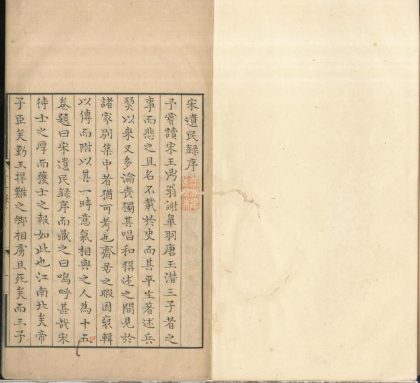 宋遺民錄序
予嘗讀宋王鼎翁謝皐羽唐玉潛三子者之
事而悲之且名不載於史而其平生著述兵
燹以來又多淪喪獨其唱和稱述之間見於
諸家別集中者猶可考也齋居之暇因裒輯
以傳而附以其一時意氣相與之人為十五
卷題曰宋遺民錄序而藏之曰嗚呼甚哉宋
待士之厚而獲士之報如此也江南北矣帝
子臣矣勤王捍難之鄉相虜且死矣而三子